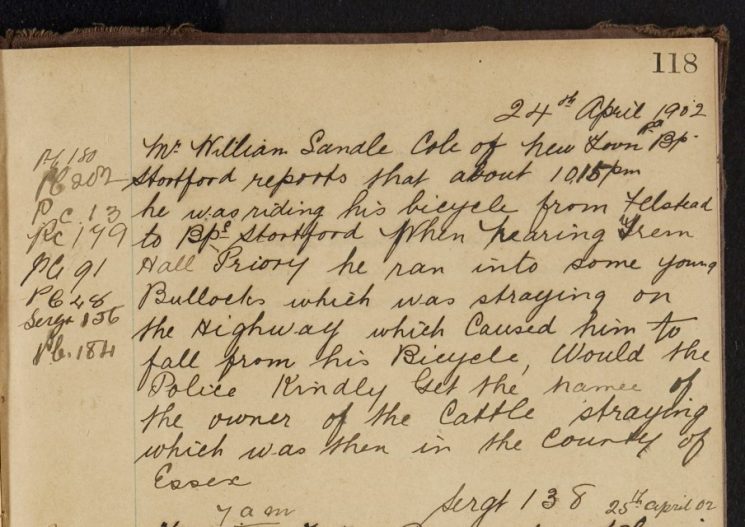 118
24th April 1902
Mr William Sandle Cole of New Town Rd Bp.
Stortford reports that about 10.15 pm
he was riding his bicycle from Felstead
to Bps Stortford When nearing Trem
Hall Priory he ran into some young
Bullocks which was straying on
the Highway which Caused him to
fall from his Bicycle, Would the
Police Kindly Get the name of
the owner of the Cattle straying
which was then in the County of
Essex
Pc 180
Pc 202
P.C. 13
Pc 179
Pc 91
Pc 48
Sergt 136
Pc. 184
Sergt 138 25th April 02
7 am